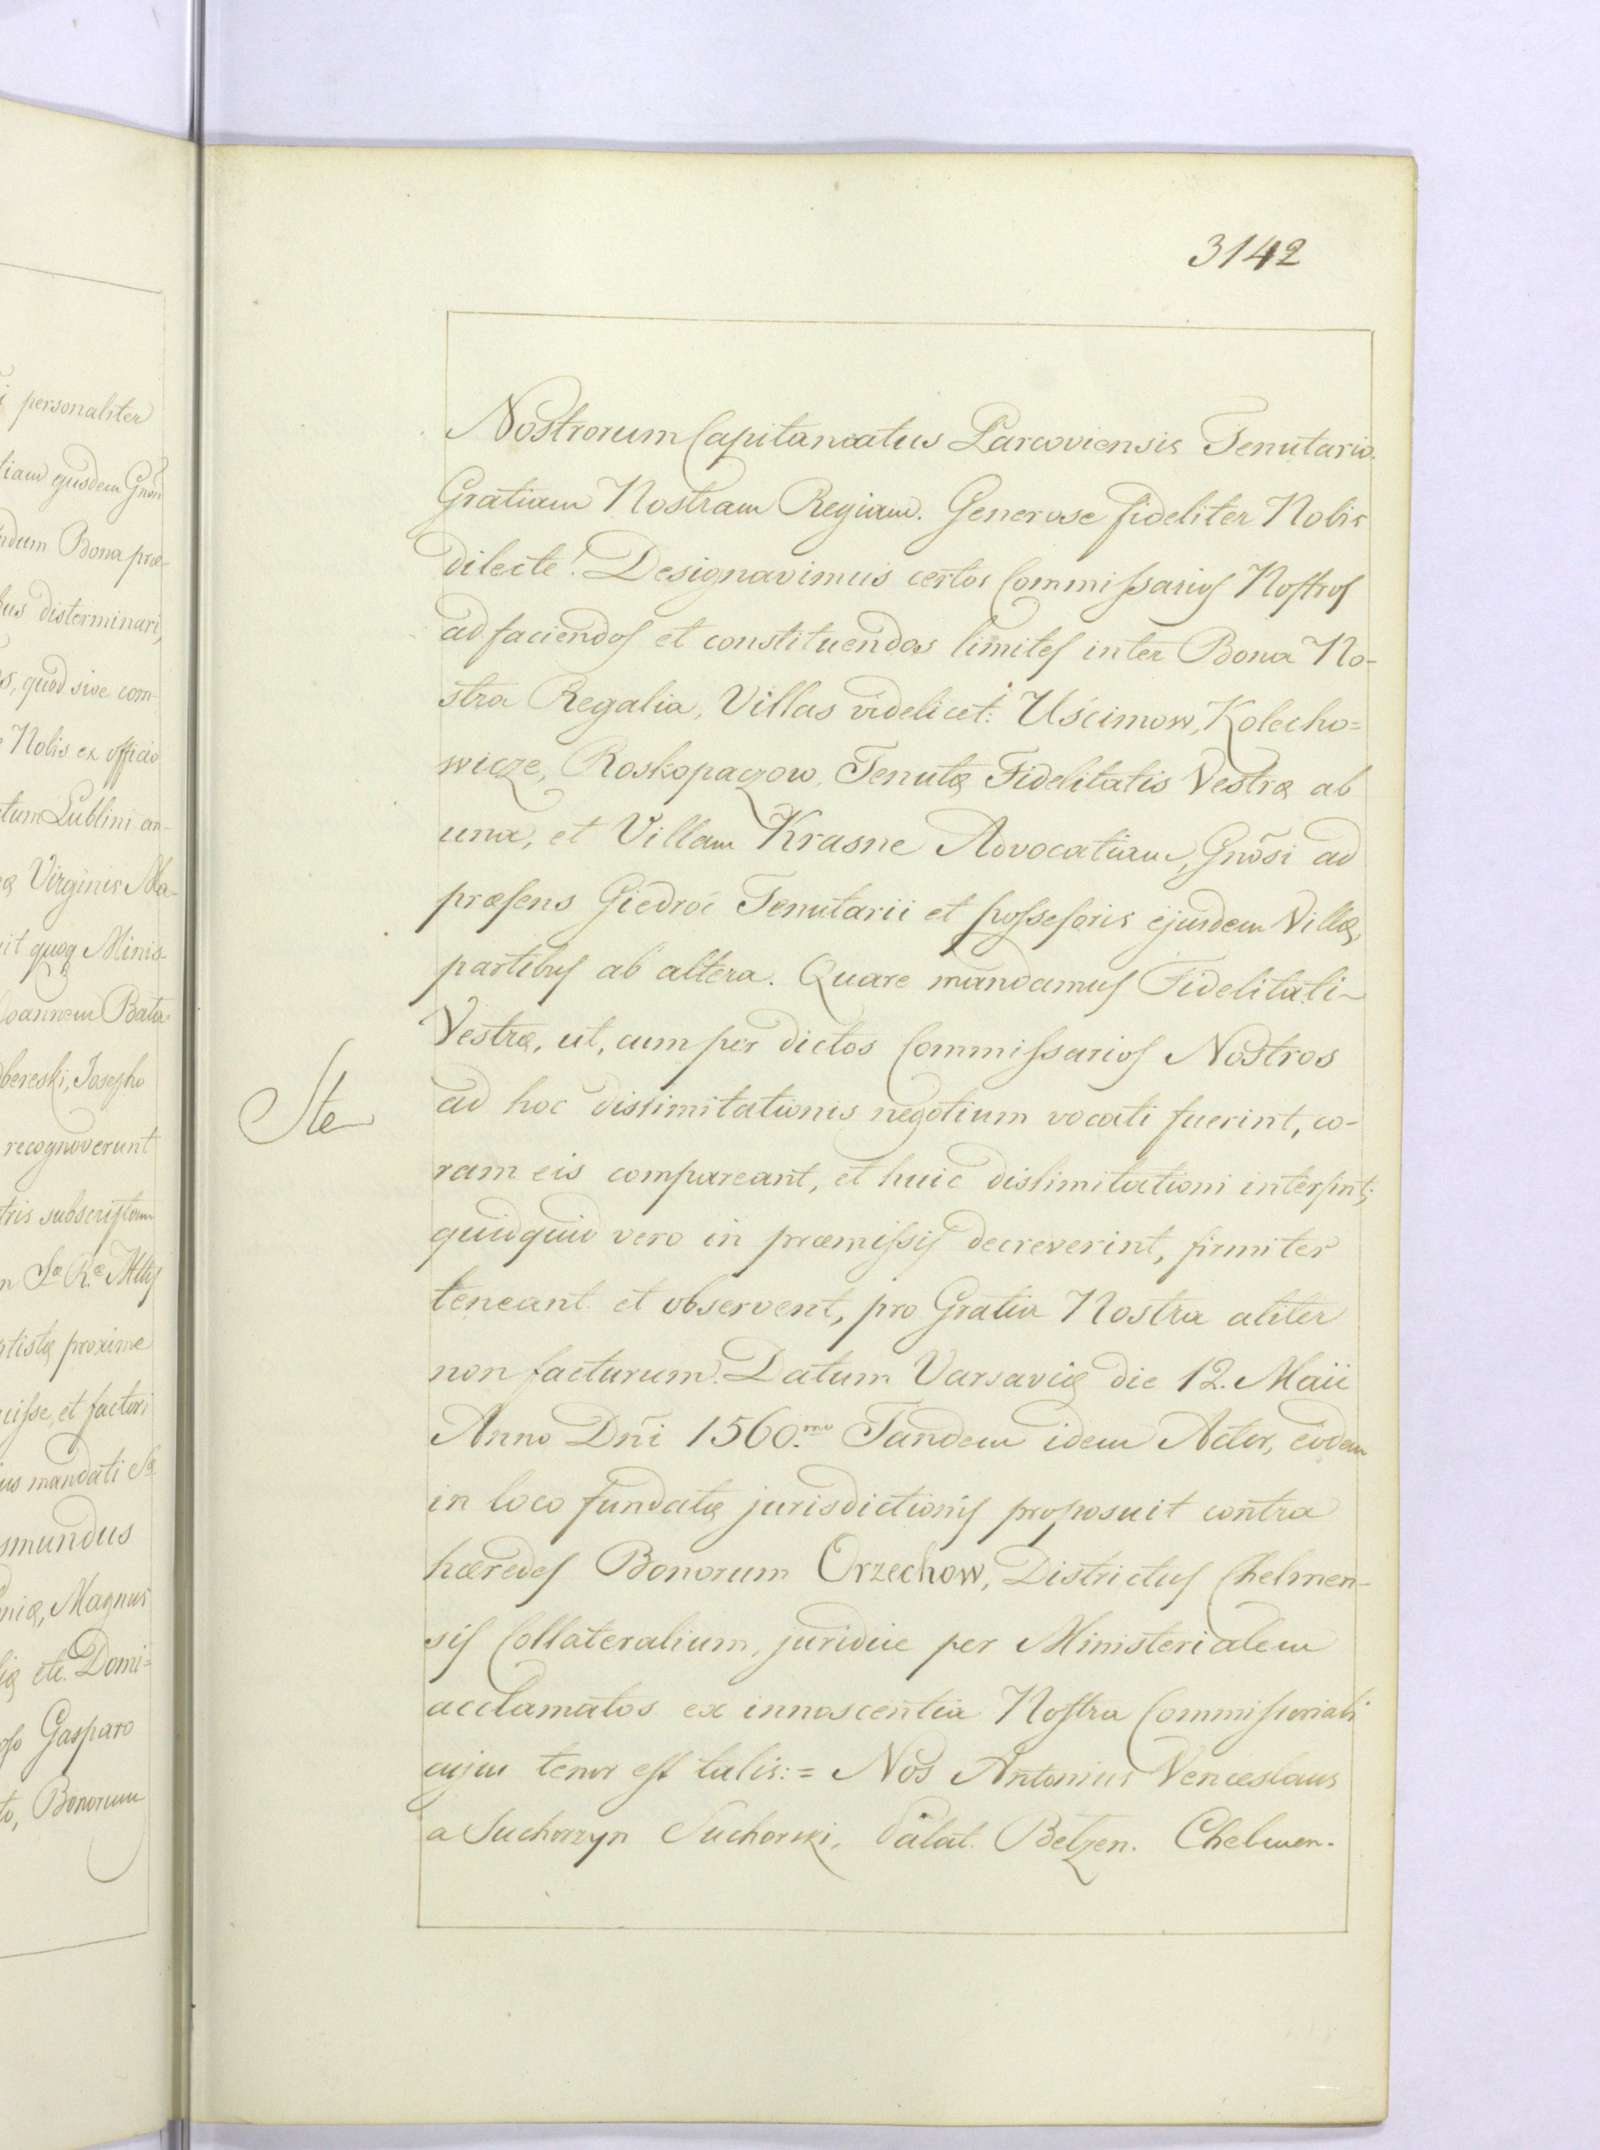 3142
i personaliter
tiam ejusdem Gnōsi
ndum Bona præ-
bus disterminari,
s, quod sive com-
Nobis ex officio
ctum Lublini an-
Virginis Ma-
it quoq Minis-
Joannem
bereski, Josepho
recognoverunt
tris subscriptam
n Sæ Ræ Mttis
ptistæ proxime
cisse, et factori
ius mandati Sæ
smundus
niæ, Magnus
iæ etc. Domi=
oso Gasparo
to, Bonorum
Nostrorum Capitaneatus Parcoviensis Tenutario.
Gratiam Nostram Regiam. Generose fideliter Nobis
dilecte! Designavimus certos Commissarios Nostros
ad faciendos et constituendos limites inter Bona No-
stra Regalia, Villas videlicet: Uścimow, Kolecho=
wicze, Roskopaczow, Tenutæ Fidelitatis Vestræ ab
una, et Villam Krasne Advocatiam, Gnōsi ad
præsens Giedroć Tenutarii et possessoris ejusdem Villæ,
partibus ab altera. Quare mandamus Fidelitati
Vestræ, ut, cum per dictos Commissarios Nostros
ad hoc dislimitationis negotium vocati fuerint, co-
ram eis compareant, et huic dislimitationi intersint;
quidquid vero in præmissis decreverint, firmiter
teneant et observent, pro Gratia Nostra aliter
non facturum. Datum Varsaviæ die 12. Maii
Anno Dñi 1560.mo Tandem idem Actor, eodem
in loco fundatæ jurisdictionis proposuit contra
hæredes Bonorum Orzechow, Districtus Chelmen-
sis Collateralium, juridice per Ministerialem
acclamatos ex innoscentia Nostra Commissoriali
cujus tenor est talis: = Nos Antonius Venceslaus
a Suchorzyn Suchorski, Palat. Betzen. Chelmen.